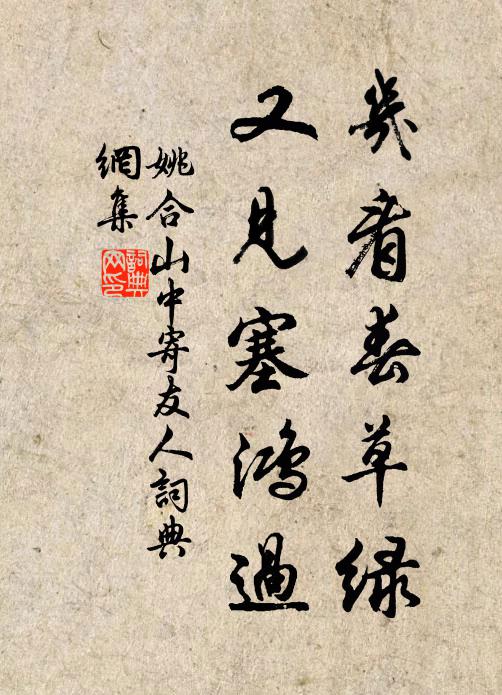 幾看春草綠
又見塞鴻過
姚合山中寄友人詞典
網集
詞典
网印